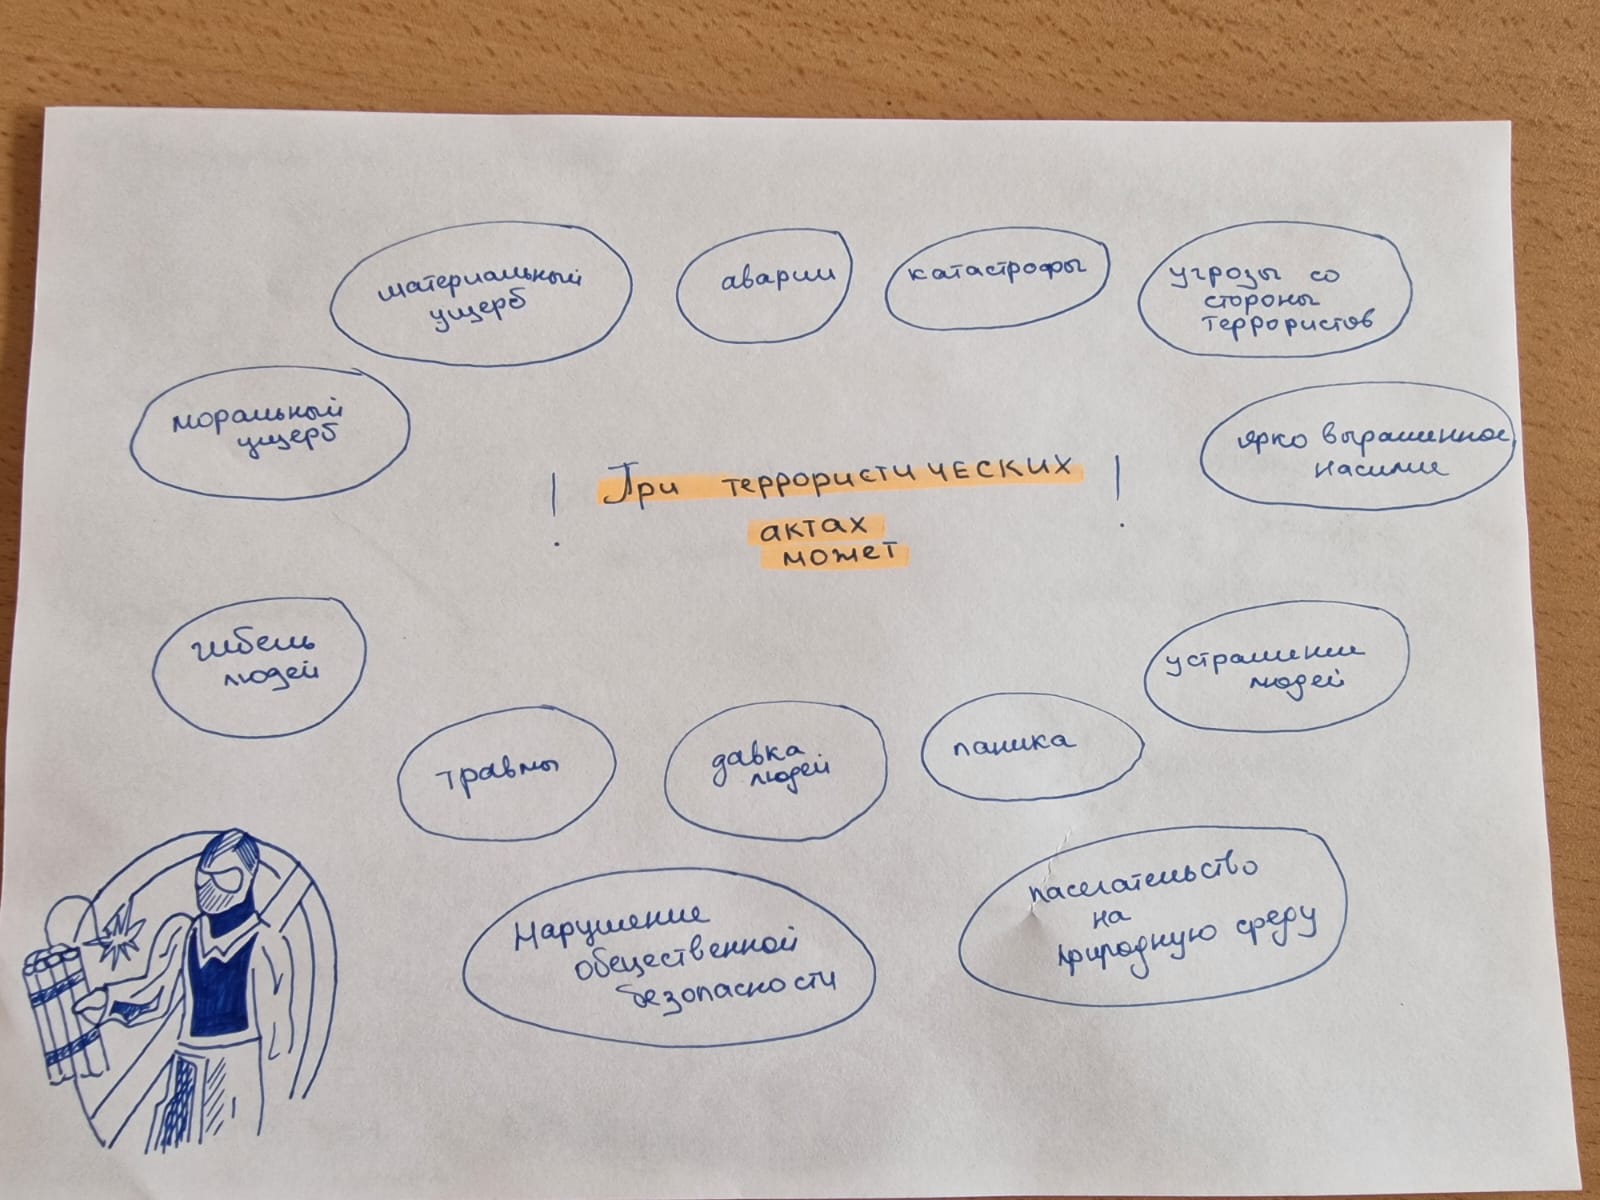 материальный
ущерб
аварии
катастрофы
угрозы со
стороны
террористов
моральный
ущерб
ярко выраженное
насилие
! При террористических !
актах
может
гибель
людей
устрашение
людей
травмы
давка
людей
паника
Нарушение
общественной
безопасности
пасегательство
на
природную среду